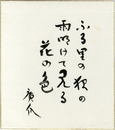 ふる里の秋の
雨明けて見る
花の色